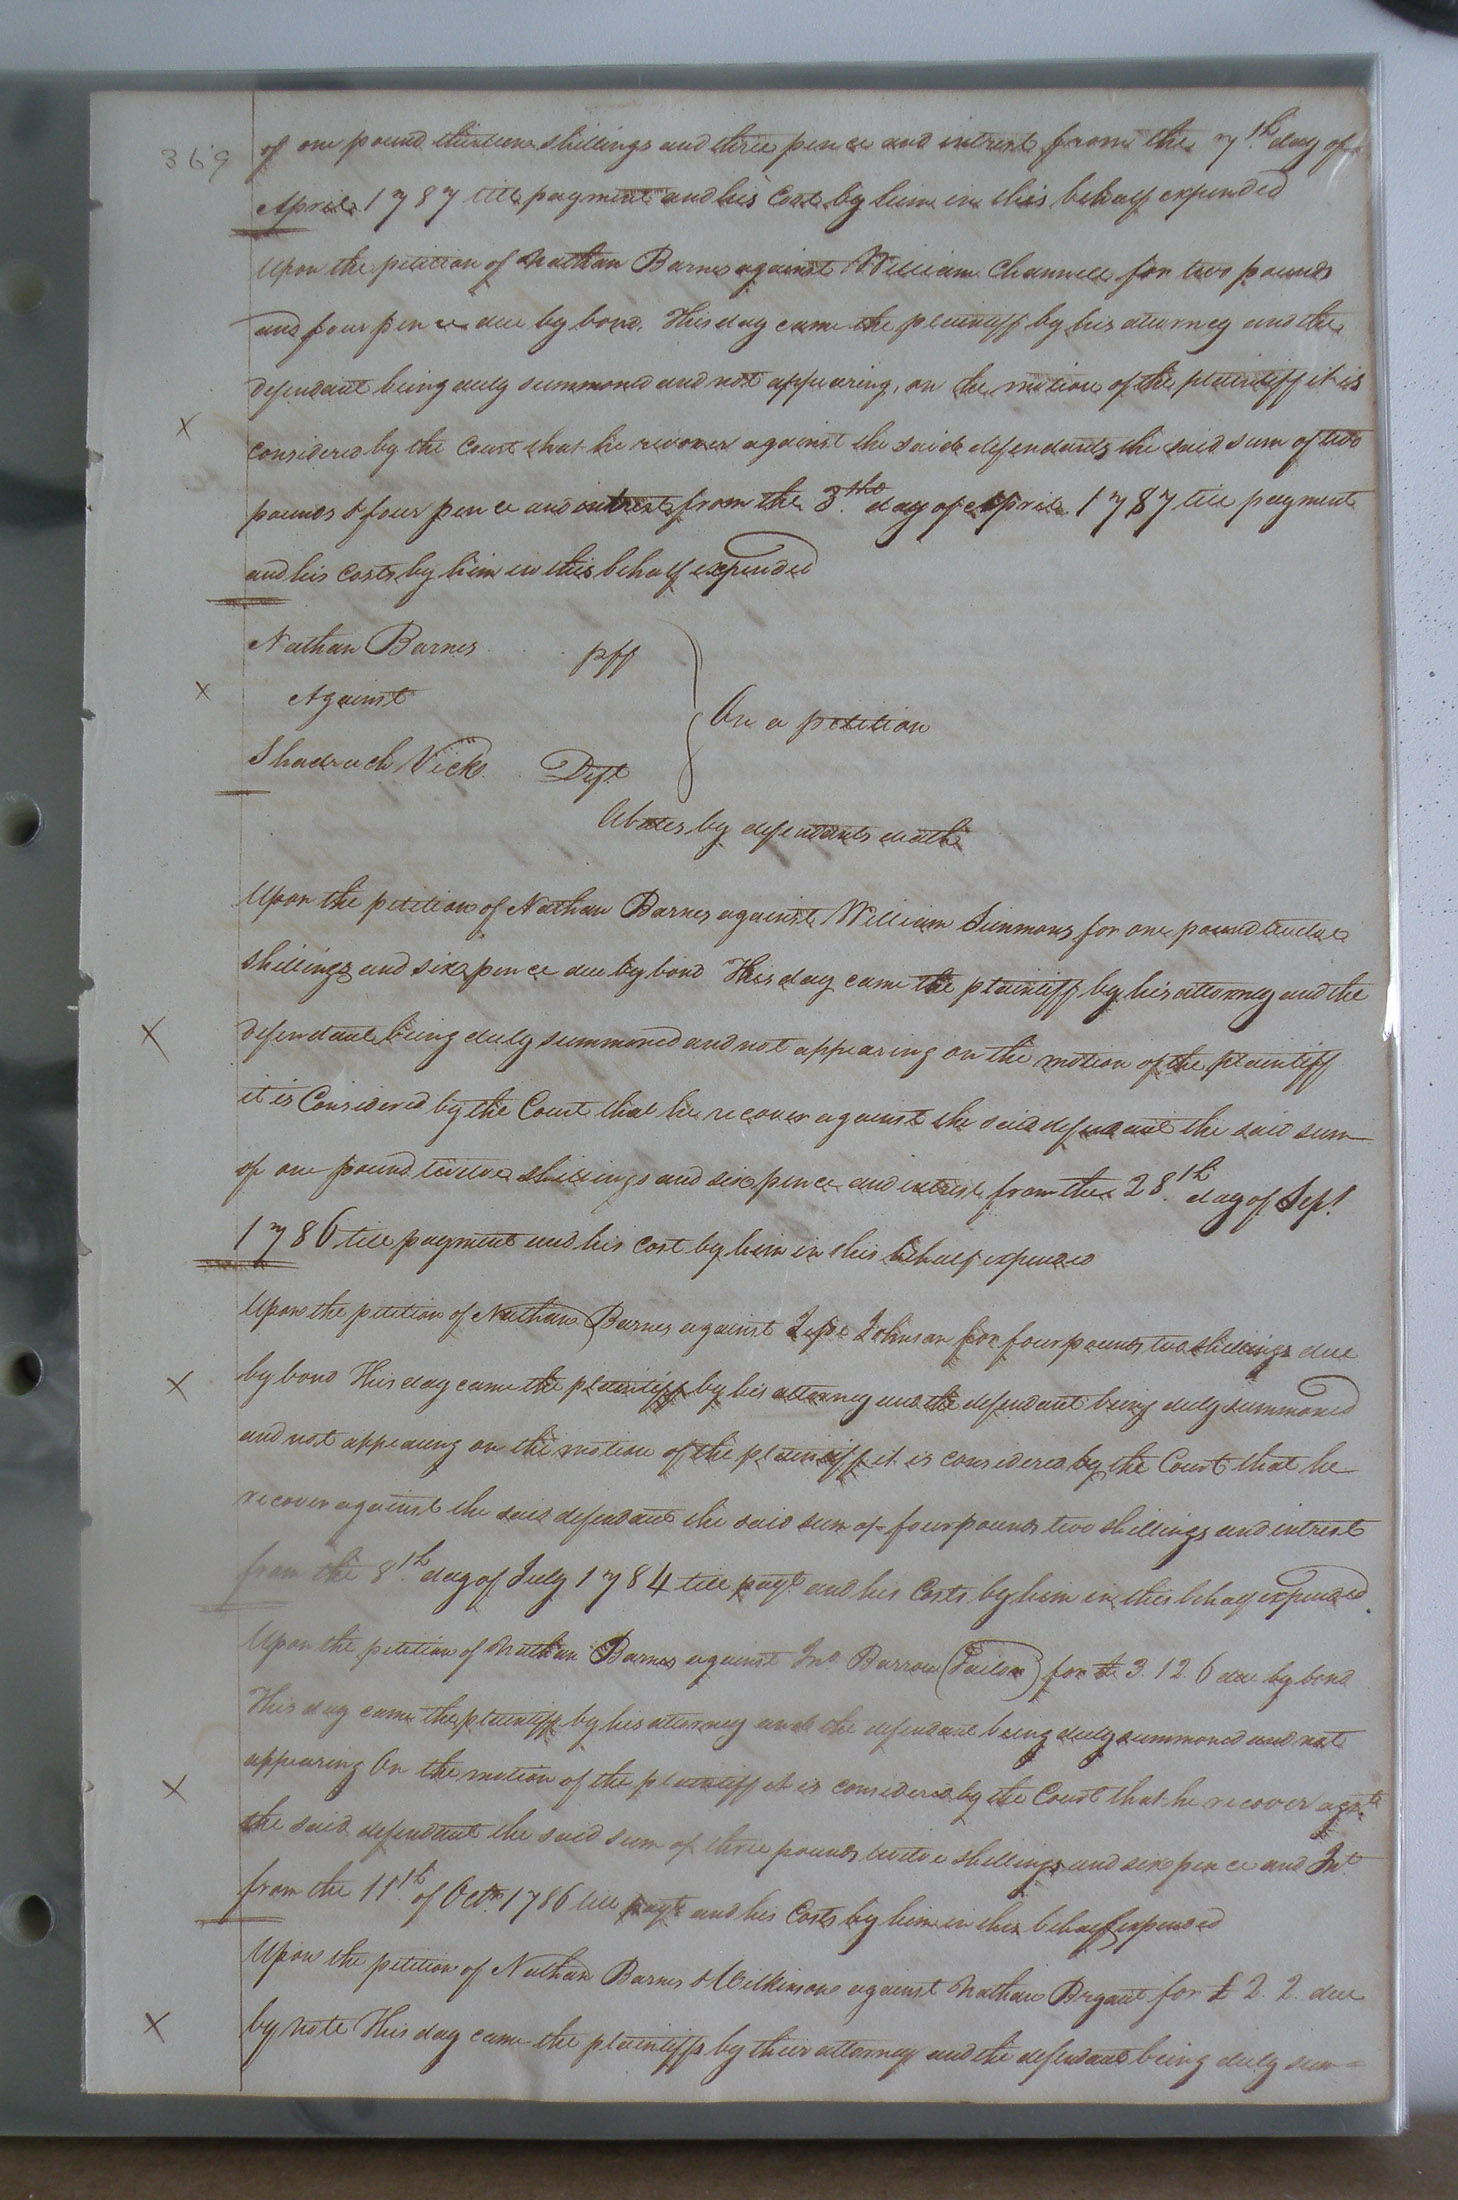 369
of one pound thirteen shillings and three pence and intrest from the 7th day of
April 1787 till payment and his Cost by him in this behalf expended
Upon the petition of Nathan Barnes against William Channell for two pounds
and four pence due by bond. This day came the plaintiff by his attorney and the
defendant being duly summoned and not appearing, on the motion of the plaintiff it is
considered by the Court that he recover against the said defendants the said sum of two
pounds & four pence and intrest from the 3rd day of April 1787 till payment
and his costs by him in this behalf expended
Nathan Barnes pff
Against
On a petition
Shadrach Vick Deft
Abates by defendants death
Upon the petition of Nathan Barnes against William Simmons for one pound twelve
shillings and six pence due by bond This day came the plaintiff by his attorney and the
defendant being duly summoned and not appearing on the motion of the plaintiff
it is Considered by the Court that he recover against the said defendant the said sum
of one pound twelve shillings and six pence and intrest from the 28th day of Sept
1786 till payment and his cost by him in this behalf expended
Upon the petition of Nathan Barnes against Jesse Johnson for four pounds two shillings due
by bond This day came the plaintiff by his attorney and the defendant being duly summoned
and not appearing on the motion of the plaintiff it is considered by the Court that he
recover against the said defendant the said sum of four pounds two shillings and intrest
from the 8th day of July 1784 till payt and his Costs by him in this behalf expended.
Upon the petition of Nathan Barnes against Jno Barrow (Tailor) for £ 3. 12. 6 due by bond
This day came the plaintiff by his attorney and the defendant being duly summoned and not
appearing On the motion of the plaintiff it is considered by the Court that he recover agst
the said defendant the said sum of three pounds twelve shillings and six pence and Int
from the 11th of Octr 1786 till payt and his Costs by him in this behalf expended
Upon the petition of Nathan Barnes & Wilkinson against Nathan Bryant for £ 2. 2. due
by note This day came the plaintiffs by their attorney and the defendant being duly sum=